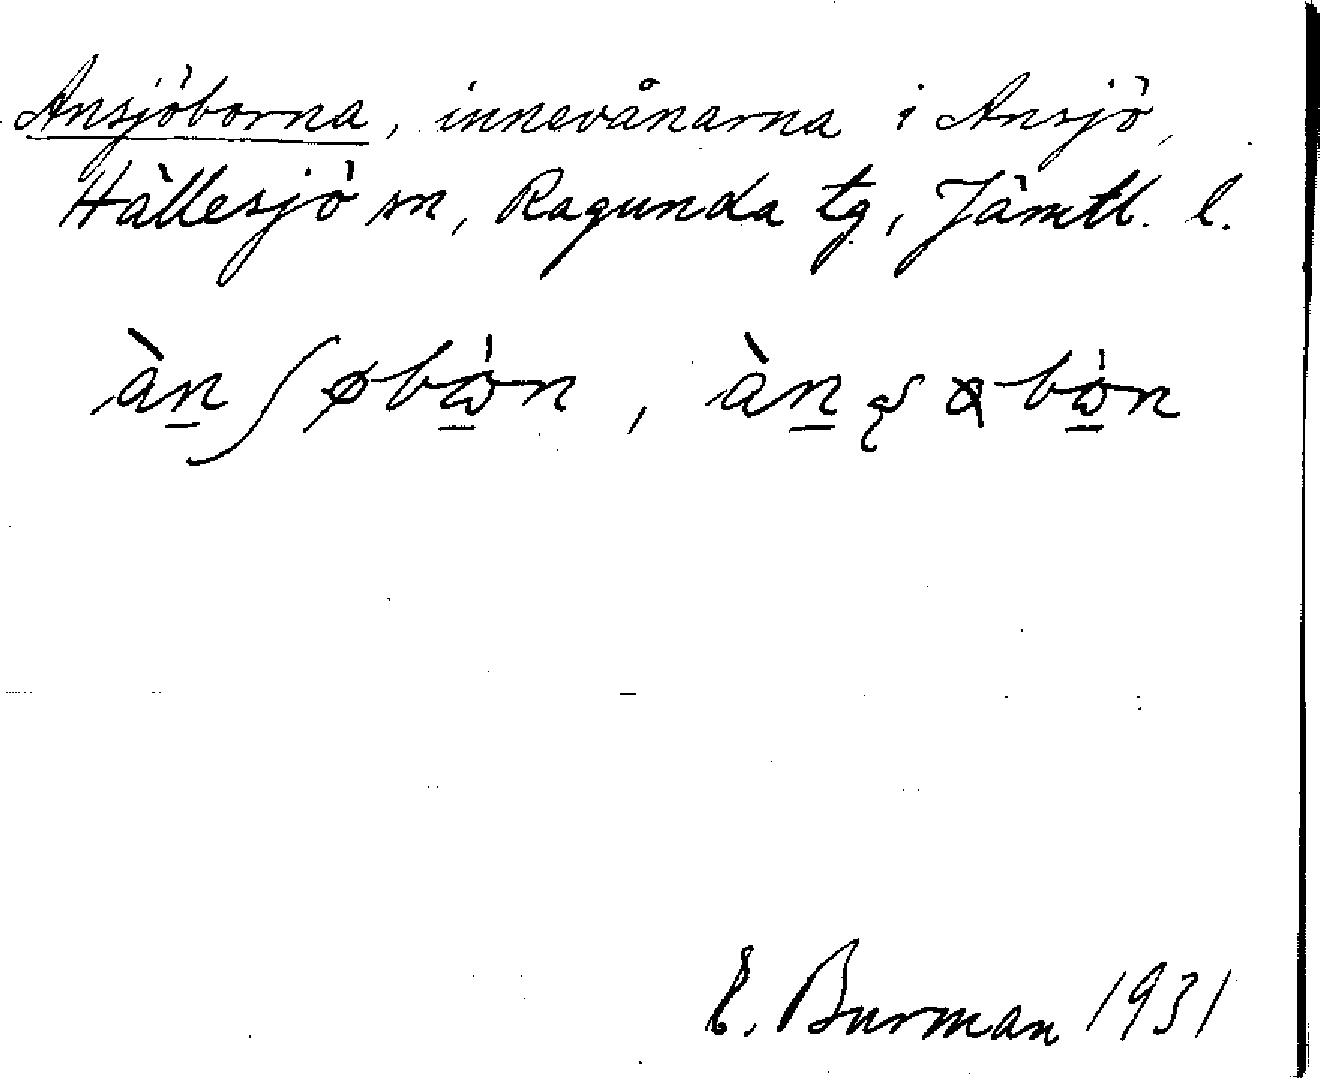 Ansjöborna, innevånarna i Ansjö,
Hällesjö sn, Ragunda tg, Jämtl. l.
E. Burman 1931